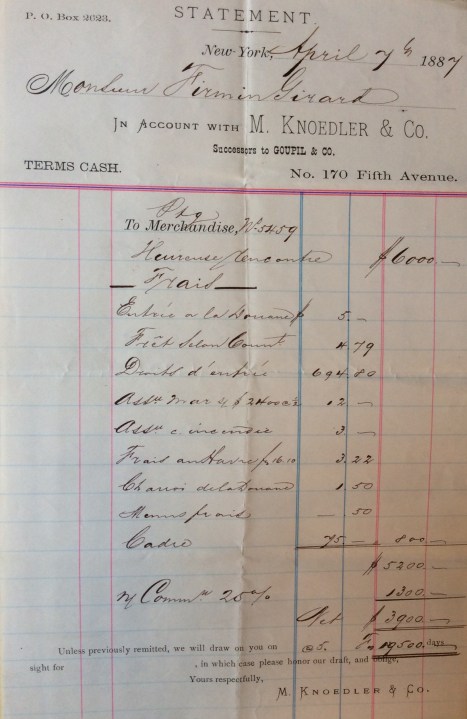 P. O. Box 2023.
STATEMENT.
New-York, April 7th 1887
Monsieur Firmin Girard
IN ACCOUNT WITH M. KNOEDLER & CO.
Successors to GOUPIL & CO.
TERMS CASH.
No. 170 Fifth Avenue.
Ptg
To Merchandise, No 5459
Heureuse Rencontre $6000.—
— Frais —
Entrée a la Douane $ 5.—
Frêt selon Count. 4.79
Droits d'entrée 694.80
Assce Mar $2400 12.—
Assce c. incendie 3.—
Frais au Havre f 16.10 3.22
Charroi de la Douane 1.50
Menus frais .50
Cadre 75.— 800.—
$ 5200.—
n/ Common 25% 1300.—
Net $ 3900.—
@5. Fr 19500.
Unless previously remitted, we will draw on you on days
sight for , in which case please honor our draft, and oblige,
Yours respectfully,
M. KNOEDLER & CO.